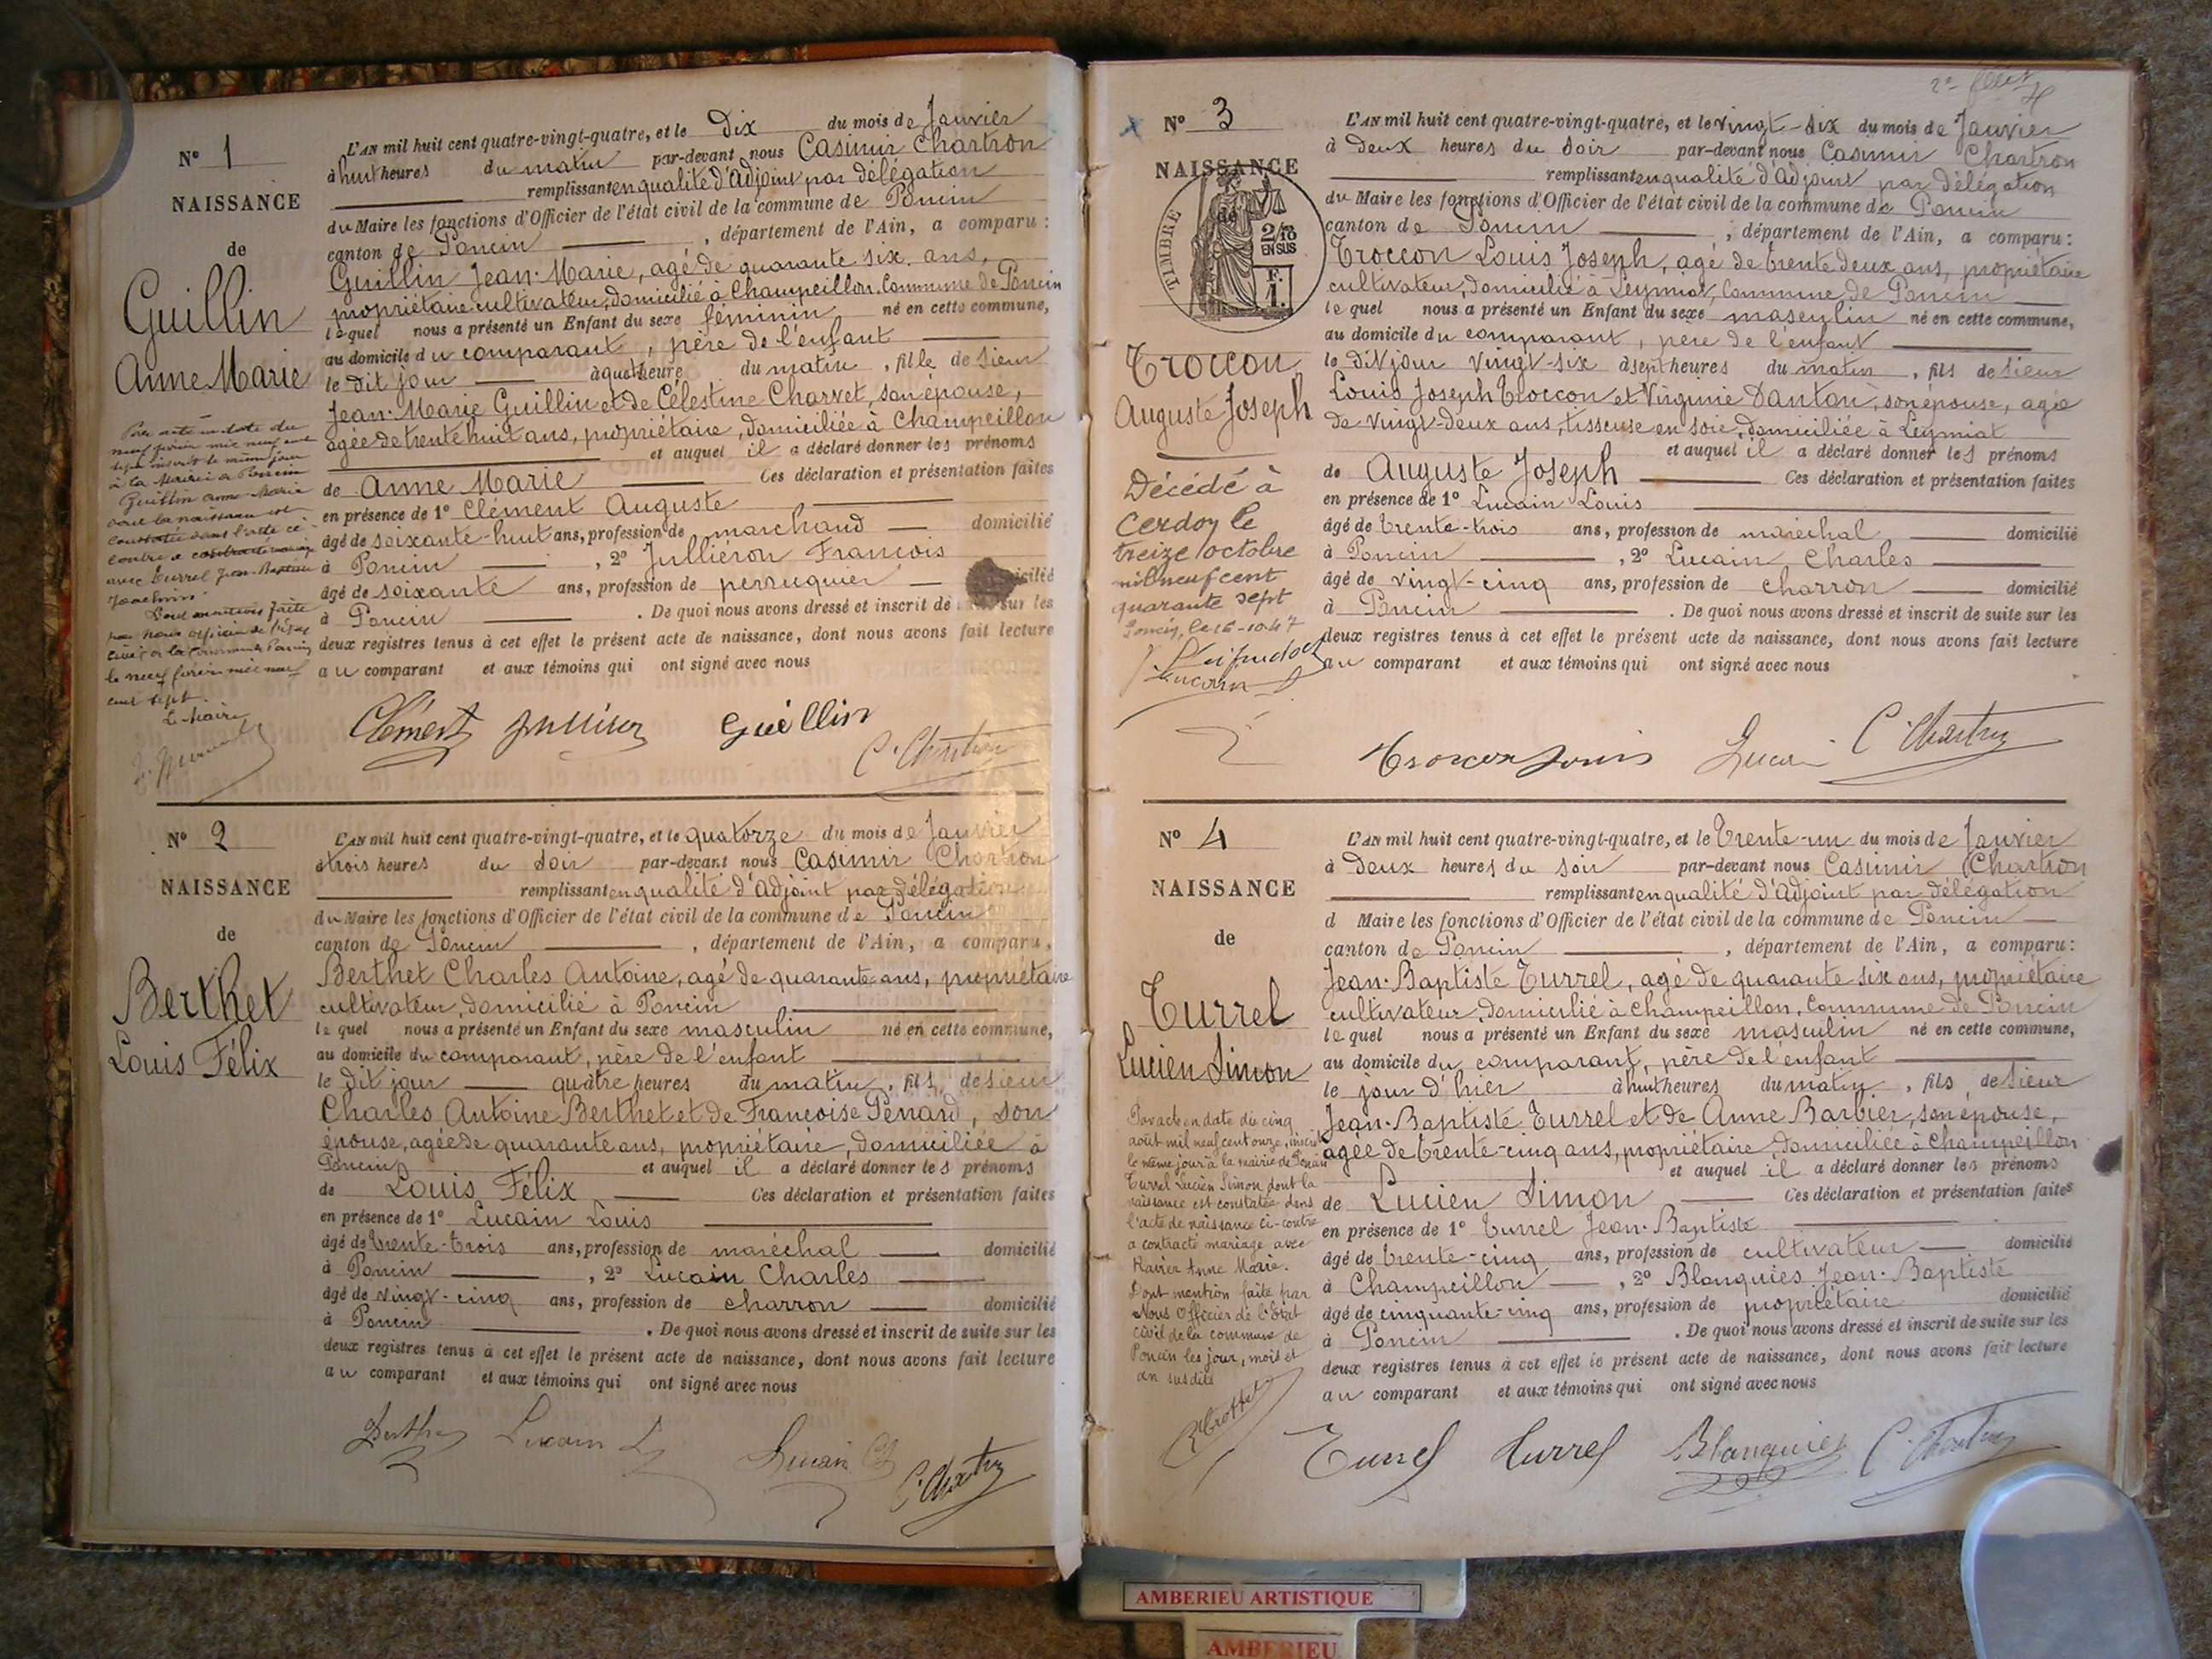 N° 1
NAISSANCE
de
Guillin
Anne Marie
L'AN mil huit cent quatre-vingt-quatre, et le Dix du mois de Janvier
à huit heures du matin par-devant nous Casimir Chartron
remplissant en qualité d'Adjoint par délégation
du Maire les fonctions d'Officier de l'état civil de la commune de Poncin
canton de Poncin, département de l'Ain, a comparu :
Guillin Jean-Marie, agé de quarante six ans,
propriétaire cultivateur, domicilié à Champeillon, Commune de Poncin
lequel nous a présenté un Enfant du sexe féminin né en cette commune,
au domicile du comparant, père de l'enfant
le dit jour à quatre heure du matin, fille de sieur
Jean-Marie Guillin et de Célestine Charvet, son épouse,
agée de trente huit ans, propriétaire, domiciliée à Champeillon
et auquel il a déclaré donner les prénoms
de Anne Marie Ces déclaration et présentation faites
en présence de 1° Clément Auguste
âgé de soixante-huit ans, profession de marchand domicilié
à Poncin, 2° Jullieron François
âgé de soixante ans, profession de perruquier
à Poncin. De quoi nous avons dressé et inscrit de sur les
deux registres tenus à cet effet le présent acte de naissance, dont nous avons fait lecture
au comparant et aux témoins qui ont signé avec nous
Par acte en date du
neuf février mil neuf cent
sept inscrit le même jour
à la Mairie de Poncin
Guillin Anne-Marie
dont la naissance est
constatée dans l'acte ci-
contre a contracté mariage
avec Turrel Jean-Baptiste
Joachim.
Dont mention faite
par nous officier de l'état
civil de la commune de Poncin
le neuf février mil neuf
cent sept.
Le Maire
Clément Guillin
C. Chartron
N° 2
NAISSANCE
de
Berthet
Louis Félix
L'AN mil huit cent quatre-vingt-quatre, et le quatorze du mois de Janvier
à trois heures du soir par-devant nous Casimir Chartron
remplissant en qualité d'Adjoint par délégation
du Maire les fonctions d'Officier de l'état civil de la commune de Poncin
canton de Poncin, département de l'Ain, a comparu,
Berthet Charles Antoine, agé de quarante ans, propriétaire
cultivateur, domicilié à Poncin
lequel nous a présenté un Enfant du sexe masculin né en cette commune,
au domicile du comparant, père de l'enfant
le dit jour quatre heures du matin, fils de sieur
Charles Antoine Berthet et de Françoise Penard, son
épouse, agée de quarante ans, propriétaire, domiciliée à
Poncin et auquel il a déclaré donner les prénoms
de Louis Félix Ces déclaration et présentation faites
en présence de 1° Lucain Louis
âgé de trente-trois ans, profession de maréchal domicilié
à Poncin, 2° Lucain Charles
âgé de vingt-cinq ans, profession de charron domicilié
à Poncin. De quoi nous avons dressé et inscrit de suite sur les
deux registres tenus à cet effet le présent acte de naissance, dont nous avons fait lecture
au comparant et aux témoins qui ont signé avec nous
Berthet Lucain L Lucain Ch
C. Chartron
N° 3
NAISSANCE
de
TIMBRE
2/10
EN SUS
F.
1.
Troccon
Auguste Joseph
L'AN mil huit cent quatre-vingt-quatre, et le vingt-six du mois de Janvier
à deux heures du soir par-devant nous Casimir Chartron
remplissant en qualité d'Adjoint par délégation
du Maire les fonctions d'Officier de l'état civil de la commune de Poncin
canton de Poncin, département de l'Ain, a comparu :
Troccon Louis Joseph, agé de trente deux ans, propriétaire
cultivateur, domicilié à Leymiat, Commune de Poncin
lequel nous a présenté un Enfant du sexe masculin né en cette commune,
au domicile du comparant, père de l'enfant
le dit jour vingt-six à sept heures du matin, fils de sieur
Louis Joseph Troccon et Virginie Danton, son épouse, agée
de vingt-deux ans, tisseuse en soie, domiciliée à Leymiat
et auquel il a déclaré donner les prénoms
de Auguste Joseph Ces déclaration et présentation faites
en présence de 1° Lucain Louis
âgé de trente-trois ans, profession de maréchal domicilié
à Poncin, 2° Lucain Charles
âgé de vingt-cinq ans, profession de charron domicilié
à Poncin. De quoi nous avons dressé et inscrit de suite sur les
deux registres tenus à cet effet le présent acte de naissance, dont nous avons fait lecture
au comparant et aux témoins qui ont signé avec nous
Décédé à
Cerdon le
treize octobre
mil neuf cent
quarante sept
Poncin, le 16-10-47
Troccon Louis Lucain C. Chartron
N° 4
NAISSANCE
de
Turrel
Lucien Simon
L'AN mil huit cent quatre-vingt-quatre, et le trente-un du mois de Janvier
à deux heures du soir par-devant nous Casimir Chartron
remplissant en qualité d'Adjoint par délégation
d Maire les fonctions d'Officier de l'état civil de la commune de Poncin
canton de Poncin, département de l'Ain, a comparu :
Jean-Baptiste Turrel, agé de quarante-six ans, propriétaire
cultivateur, domicilié à Champeillon, Commune de Poncin
lequel nous a présenté un Enfant du sexe masculin né en cette commune,
au domicile du comparant, père de l'enfant
le jour d'hier à huit heures du matin, fils de sieur
Jean-Baptiste Turrel et de Anne Barbier, son épouse,
agée de trente-cinq ans, propriétaire, domiciliée à Champeillon
et auquel il a déclaré donner les prénoms
de Lucien Simon Ces déclaration et présentation faites
en présence de 1° Turrel Jean-Baptiste
âgé de trente-cinq ans, profession de cultivateur domicilié
à Champeillon, 2° Blanquies Jean-Baptiste
âgé de cinquante-cinq ans, profession de propriétaire domicilié
à Poncin. De quoi nous avons dressé et inscrit de suite sur les
deux registres tenus à cet effet le présent acte de naissance, dont nous avons fait lecture
au comparant et aux témoins qui ont signé avec nous
Par acte en date du cinq
août mil neuf cent onze, inscrit
le même jour à la mairie de Poncin
Turrel Lucien Simon dont la
naissance est constatée dans
l'acte de naissance ci-contre
a contracté mariage avec
Ravier Anne Marie.
Dont mention faite par
Nous Officier de l'Etat
civil de la commune de
Poncin les jour, mois et
an susdits
Turrel Turrel Blanquies C. Chartron
AMBERIEU ARTISTIQUE
AMBERIEU